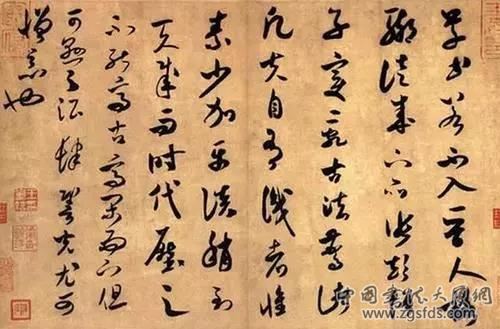 草書若不入晉人格
輒徒成下品張顛俗
子變亂古法驚諸
凡夫自有識者懷
素少加平淡稍到
天成而時代壓之
不能高古高閑而下但
可懸之酒肆䛒光尤可
憎惡也
www.zgsfds.com